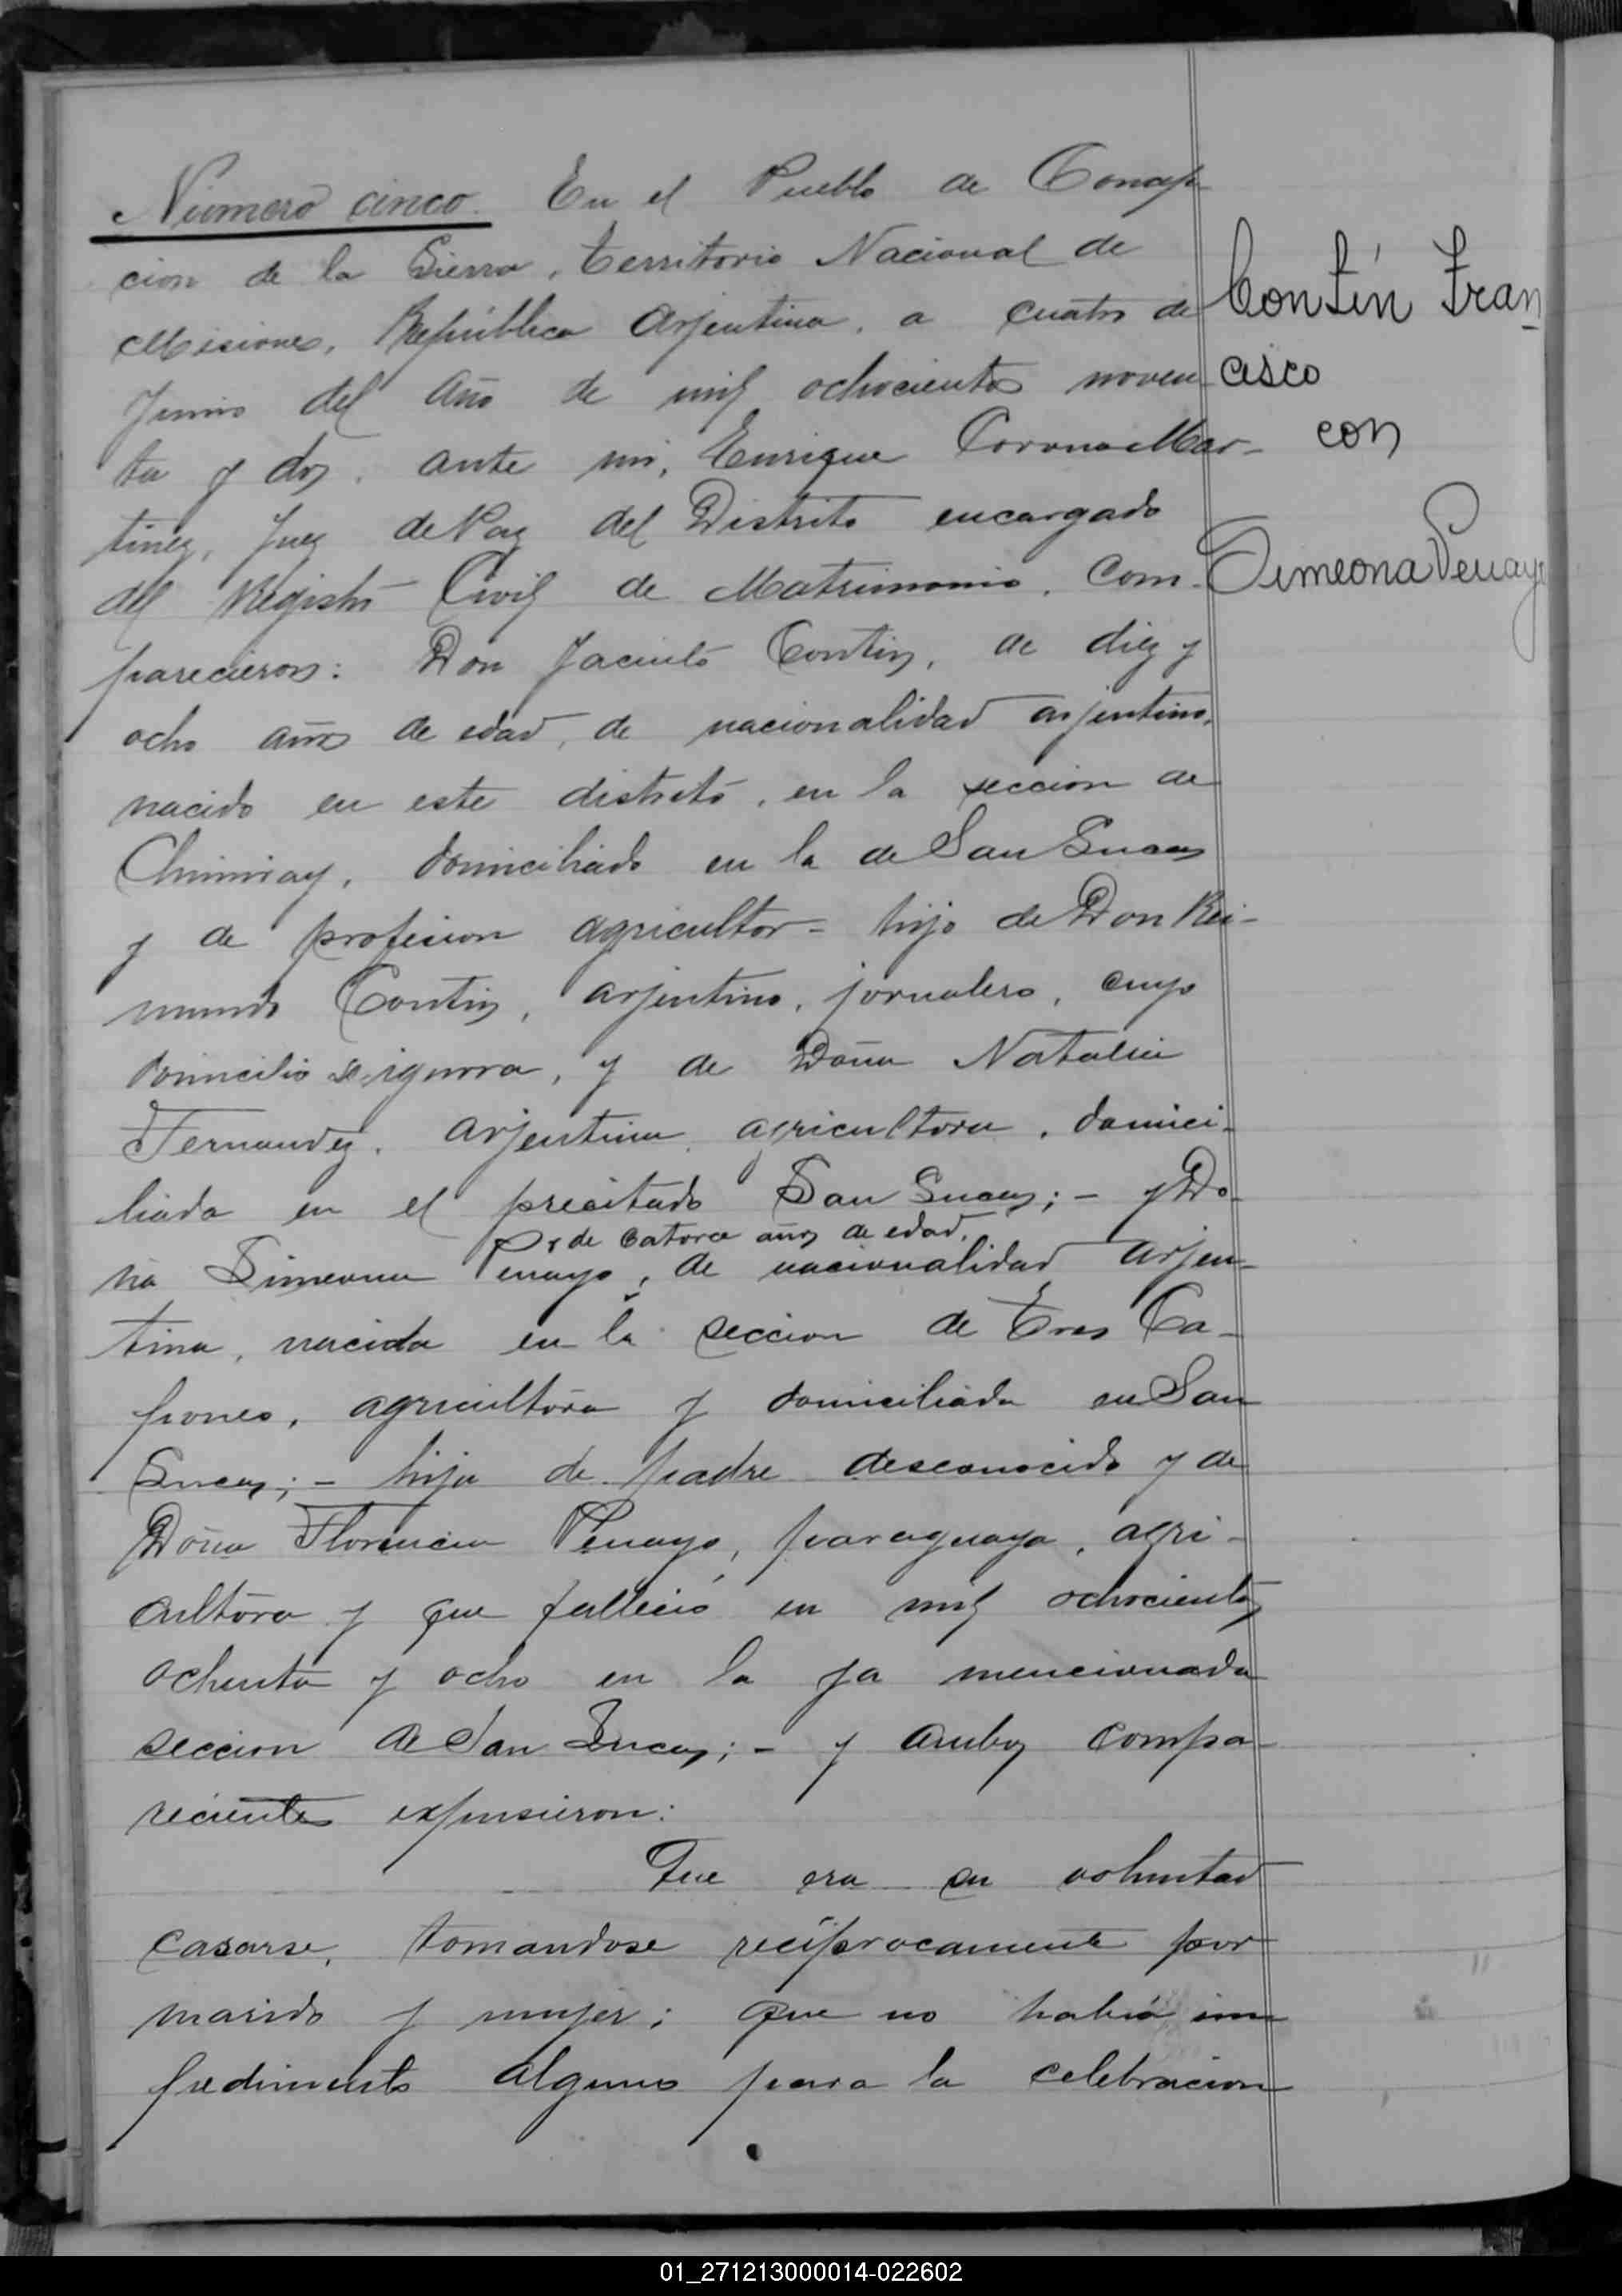 Número cinco. En el Pueblo de Concep
cion de la Sierra, Territorio Nacional de
Misiones, República Arjentina, a cuatro de
Junio del año de mil ochocientos noven
ta y dos, ante mi, Enrique Corona Mar-
tinez, Juez de Paz del Distrito encargado
del Registro Civil de Matrimonio, Com-
parecieron: Don Jacinto Contin, de diez y
ocho años de edad, de nacionalidad arjentino,
nacido en este distrito, en la seccion de
Chimiray, domiciliado en la de San Lucas
y de profesion agricultor - hijo de Don Rei-
mundo Contin, arjentino, jornalero, cuyo
domicilio se ignora, y de Doña Natalia
Fernandez, arjentina, agricultora, domici-
liada en el precitado San Lucas; - y Do-
de catorce años de edad,
ña Simeona Penayo, de nacionalidad arjen-
tina, nacida en la seccion de Tres Ca-
pones, agricultora y domiciliada en San
Lucas; - hija de padre desconocido y de
Doña Florencia Penayo, paraguaya, agri-
cultora y que falleció en mil ochocientos
ochenta y ocho en la ya mencionada
seccion de San Lucas; - y ambos compa-
recientes expusieron:
Que era su voluntad
casarse, tomandose recíprocamente por
marido y mujer; que no habia im
pedimento alguno para la celebracion
Contín Fran
cisco
con
Simeona Penayo
01_271213000014-022602